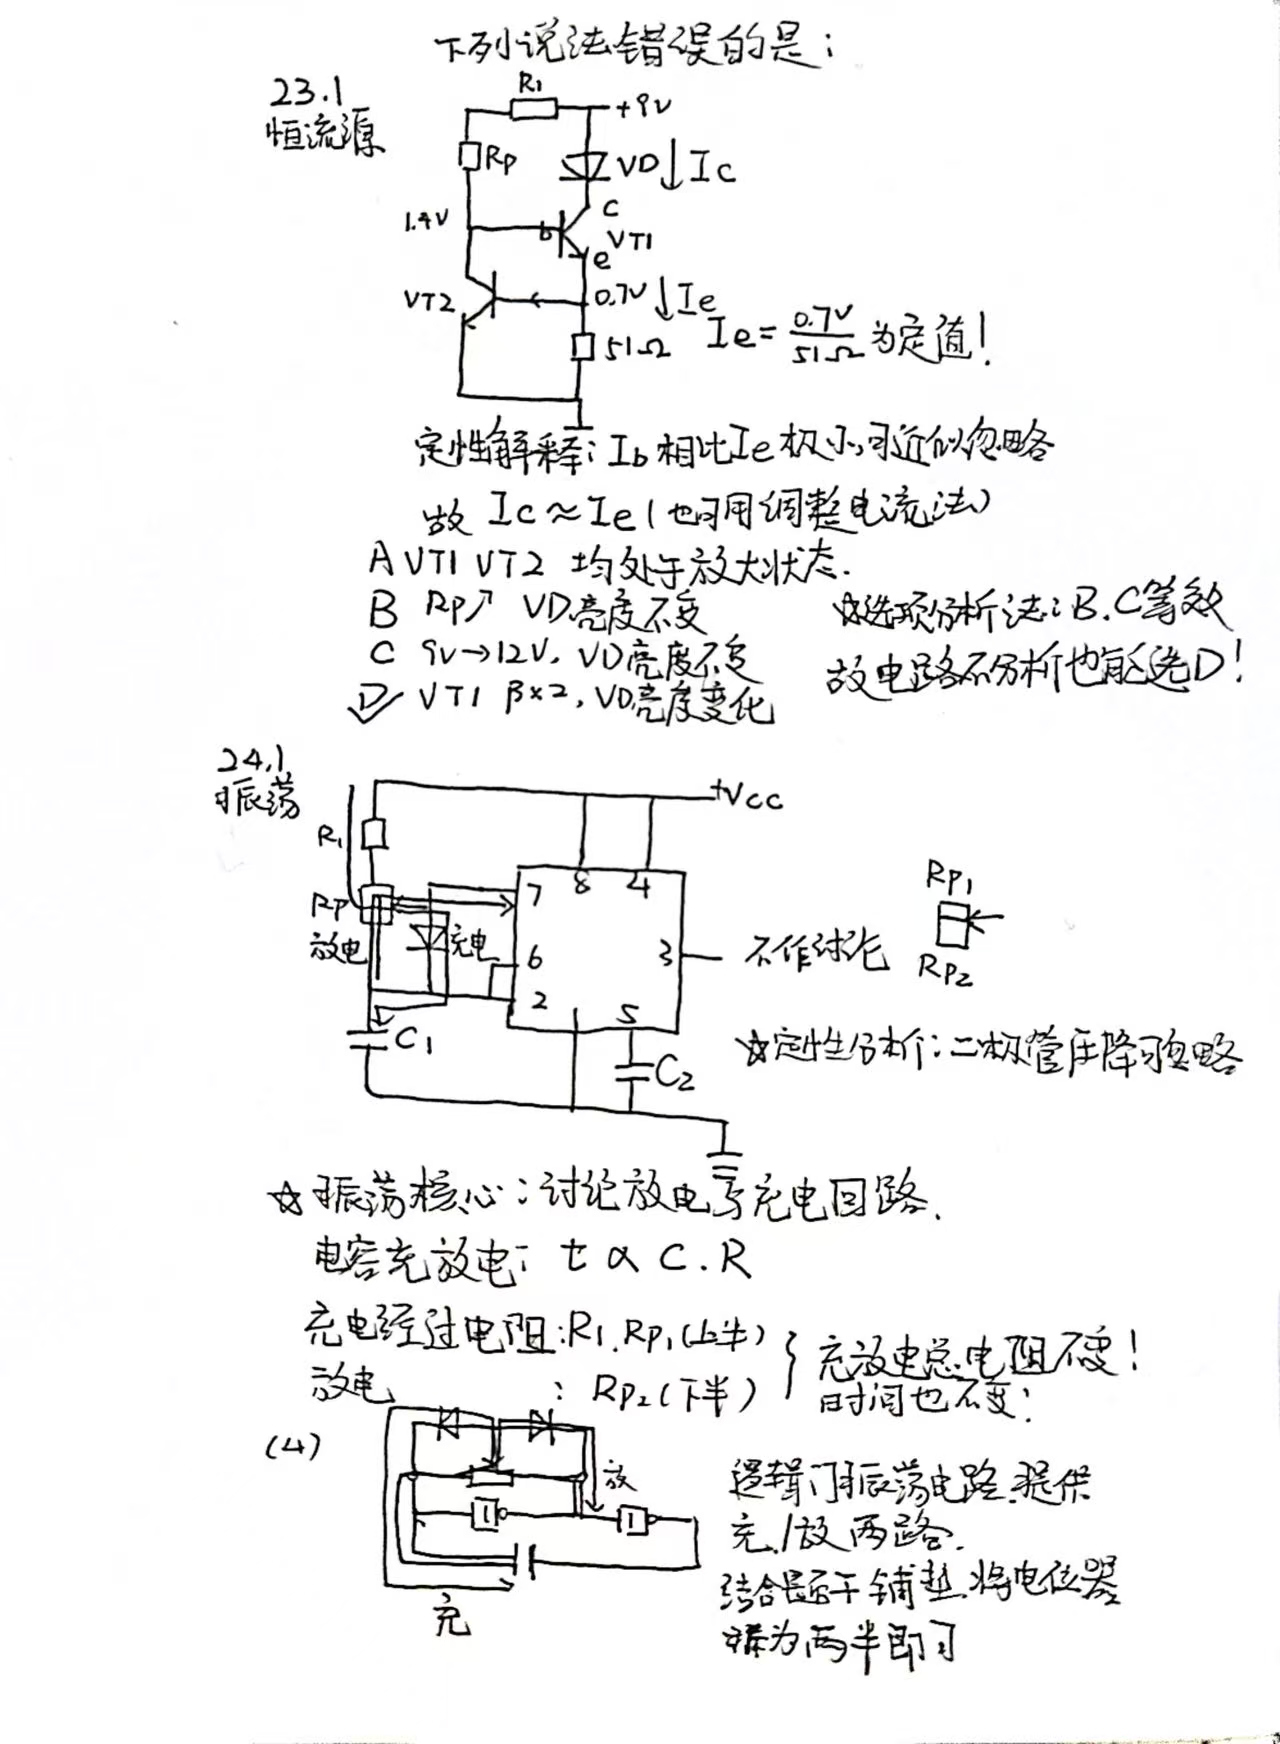 下列说法错误的是：
23.1
恒流源
R1
+9V
Rp
VD
Ic
1.4V
c
b
VT1
e
VT2
0.7V
Ie
51Ω
Ie=0.7V/51Ω为定值！
定性解释：Ib相比Ie极小，可近似忽略
故 Ic≈Ie（也可用调整电流法）
A VT1 VT2 均处于放大状态.
B Rp↗ VD亮度不变
C 9V→12V，VD亮度不变
D VT1 β×2，VD亮度变化
☆选项分析法：B.C等效
故电路不分析也能选D！
24.1
振荡
+Vcc
R1
Rp
放电
充电
7
8
4
6
2
3
5
不作讨论
Rp1
Rp2
C1
C2
☆定性分析：二极管压降可忽略
☆振荡核心：讨论放电与充电回路.
电容充放电：t∝C.R
充电经过电阻：R1.Rp1（上半）
放电 ：Rp2（下半）
充放电总电阻不变！
时间也不变！
（4）
放
1
1
充
逻辑门振荡电路.提供
充/放两路.
结合题干铺垫.将电位器
为两半即可